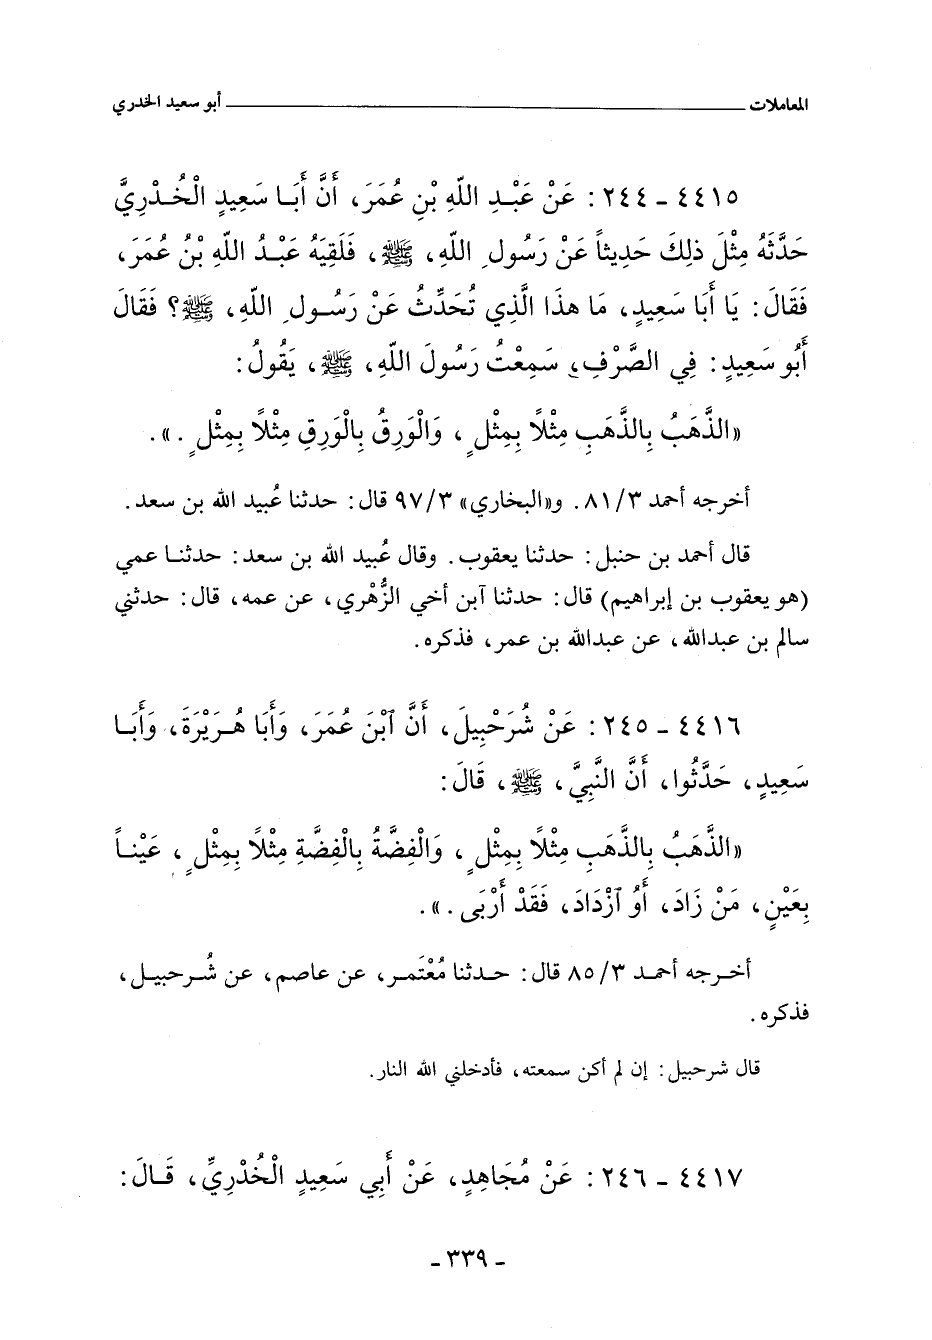 المعاملات ــــــــــــــــــ أبو سعيد الخدري
٤٤١٥ ـ ٢٤٤ : عَنْ عَبْدِ اللّهِ بْنِ عُمَرَ، أَنَّ أَبَا سَعِيدٍ الْخُدْرِيَّ
حَدَّثَهُ مِثْلَ ذلِكَ حَدِيثاً عَنْ رَسُولِ اللّهِ، ﷺ، فَلَقِيَهُ عَبْدُ اللّهِ بْنُ عُمَرَ،
فَقَالَ: يَا أَبَا سَعِيدٍ، مَا هذَا الَّذِي تُحَدِّثُ عَنْ رَسُولِ اللّهِ، ﷺ؟ فَقَالَ
أَبُو سَعِيدٍ: فِي الصَّرْفِ، سَمِعْتُ رَسُولَ اللّهِ، ﷺ، يَقُولُ:
«الذَّهَبُ بِالذَّهَبِ مِثْلًا بِمِثْلٍ، وَالْوَرِقُ بِالْوَرِقِ مِثْلًا بِمِثْلٍ.».
أخرجه أحمد ٨١/٣. و«البخاري» ٩٧/٣ قال: حدثنا عُبيد الله بن سعد.
قال أحمد بن حنبل: حدثنا يعقوب. وقال عُبيد الله بن سعد: حدثنا عمي
(هو يعقوب بن إبراهيم) قال: حدثنا آبن أخي الزُّهْري، عن عمه، قال: حدثني
سالم بن عبدالله، عن عبدالله بن عمر، فذكره.
٤٤١٦ ـ ٢٤٥ : عَنْ شُرَحْبِيلَ، أَنَّ ٱبْنَ عُمَرَ، وَأَبَا هُرَيْرَةَ، وَأَبَا
سَعِيدٍ، حَدَّثُوا، أَنَّ النَّبِيَّ، ﷺ، قَالَ:
«الذَّهَبُ بِالذَّهَبِ مِثْلًا بِمِثْلٍ، وَالْفِضَّةُ بِالْفِضَّةِ مِثْلًا بِمِثْلٍ، عَيْناً
بِعَيْنٍ، مَنْ زَادَ، أَوُ ٱزْدَادَ، فَقَدْ أَرْبَى.».
أخرجه أحمد ٨٥/٣ قال: حدثنا مُعْتَمر، عن عاصم، عن شُرحبيل،
فذكره.
قال شرحبيل: إن لم أكن سمعته، فأدخلني الله النار.
٤٤١٧ ـ ٢٤٦ : عَنْ مُجَاهِدٍ، عَنْ أَبِي سَعِيدٍ الْخُدْرِيِّ، قَالَ:
ـ ٣٣٩ ـ